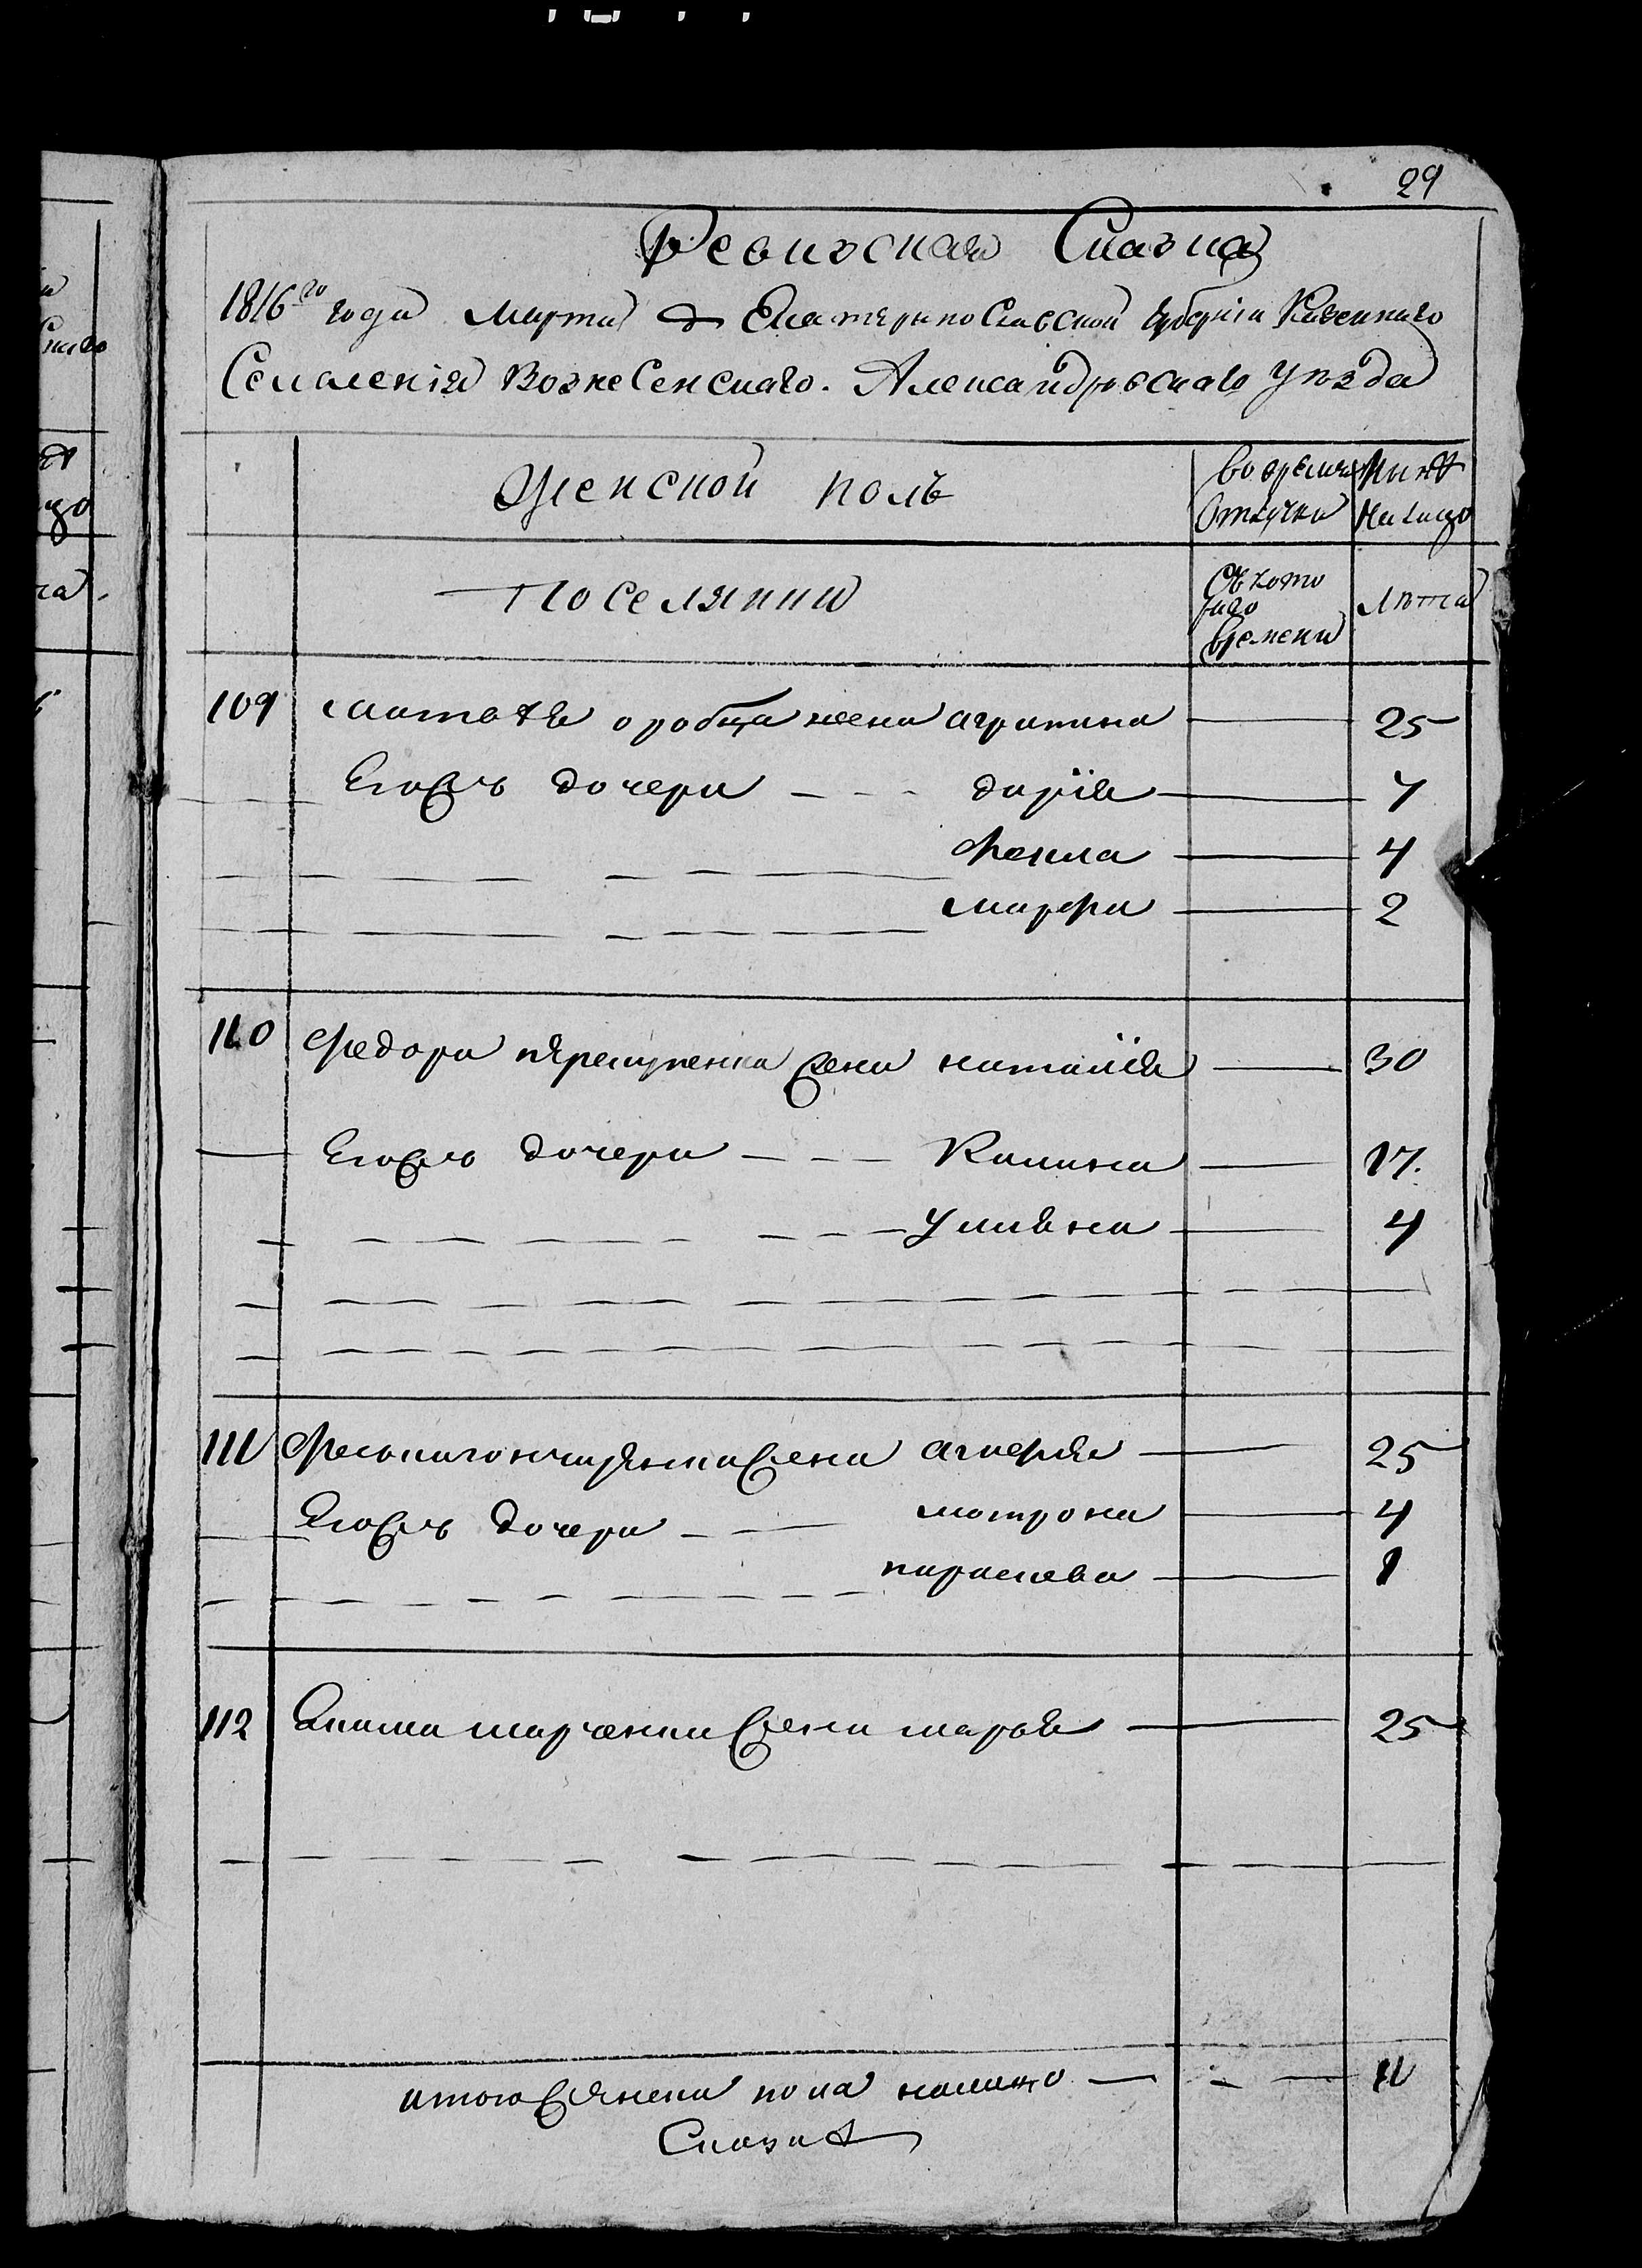 29
Ревизская Сказка
1816го года марта Екатеринославской губерніи Казеннаго
Селаленія Вознесенскаго. Александровскаго уѣзда
Женской полъ
во времяннѣ
Отлучки
Нынѣ
На лицо
Поселянин
Съ кото
раго
времени
Лѣта
109 матвея оробца жена агрипина 25
Егожъ дочери дарія 7
фекла 4
марфа 2
110 федора жена наталія 30
Егожъ дочери Калина 17.
Уляна 4
111 жена 25
Егожъ дочери мотрона 4
параскева 1
112 марченка жена марья 25
итого женска пола налицо 11
Сказка